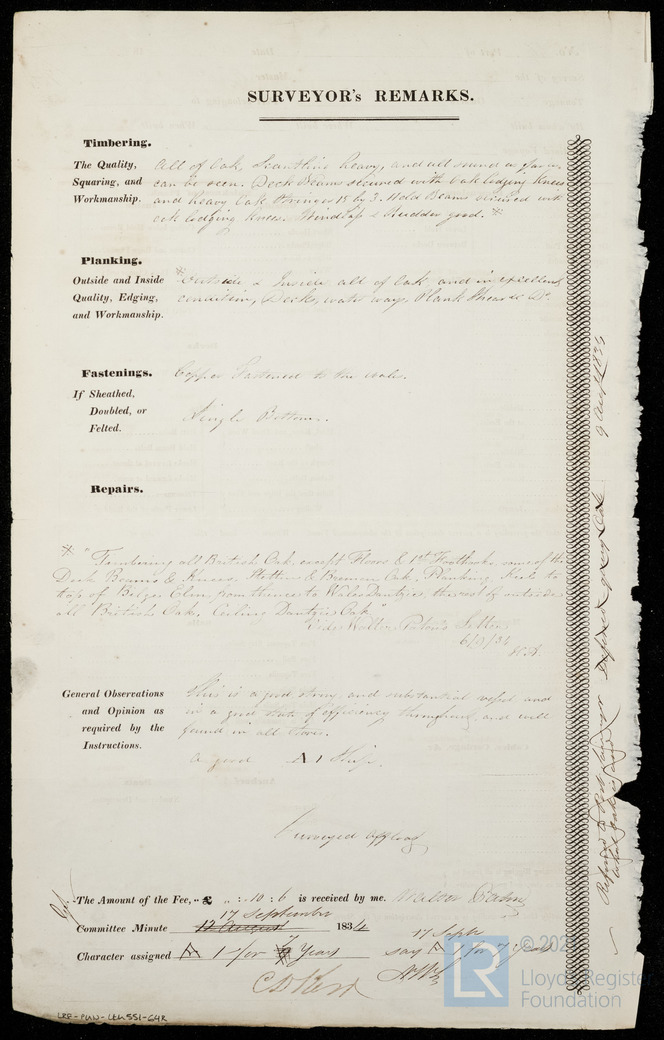 SURVEYOR's REMARKS.
Timbering.
The Quality, Squaring, and Workmanship.
All of Oak, Scantling heavy, and all sound as far as
can be seen. Deck Beams secured with Oak lodging Knees
and heavy Oak Stringer 15 by 3. Hold Beams secured with
oak lodging Knees. Windlass & Rudder good. *
Planking.
Outside and Inside Quality, Edging, and Workmanship.
* Outside & Inside all of Oak and in excellent
condition, Decks, water ways, Plank Shear & Do.
Fastenings.
Copper Fastened to the wales.
If Sheathed, Doubled, or Felted.
Single Bottom.
Repairs.
* "Timbering all British Oak, except Floors & 1st Foothooks, some of the
Deck Beams & Knees, Stettin & Bremen Oak. Planking, Keel to
top of Bilges Elm, from thence to Wales Dantzic, the rest of outside
all British Oak, Ceiling Dantzic Oak"
Vide Walter Letter
6/9/34
General Observations and Opinion as required by the Instructions.
This is a good strong and substantial vessel and
in a good state of efficiency throughout and well
found in all Stores.
a good A 1 Ship.
Surveyed afloat
The Amount of the Fee, " £ " : 10 : 6 is received by me. Walter
17 September
Committee Minute 12 August 1834
17 Septr
Character assigned A 1 for 7 Years say A 1 for 7 Years
Referred to the Surveyor
what Oak is
Deferred
9 Augt 1834
LRF-PUN-LEW551-64R
© 202
LR
Lloyd's Register
Foundation